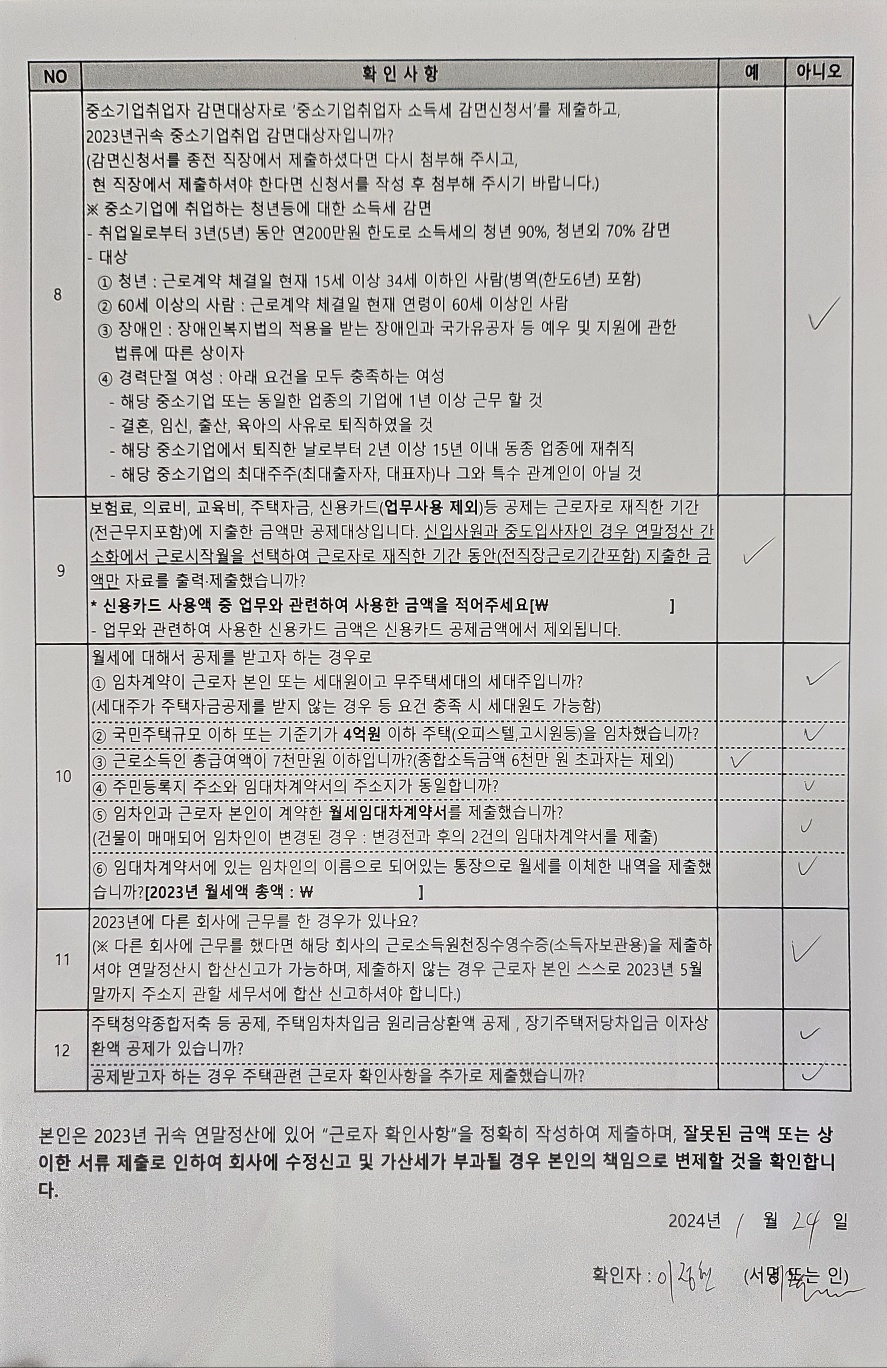 NO 확 인 사 항 예 아니오
중소기업취업자 감면대상자로 '중소기업취업자 소득세 감면신청서'를 제출하고,
2023년귀속 중소기업취업 감면대상자입니까?
(감면신청서를 종전 직장에서 제출하셨다면 다시 첨부해 주시고,
현 직장에서 제출하셔야 한다면 신청서를 작성 후 첨부해 주시기 바랍니다.)
※ 중소기업에 취업하는 청년등에 대한 소득세 감면
- 취업일로부터 3년(5년) 동안 연200만원 한도로 소득세의 청년 90%, 청년외 70% 감면
- 대상
① 청년 : 근로계약 체결일 현재 15세 이상 34세 이하인 사람(병역(한도6년) 포함)
8
② 60세 이상의 사람 : 근로계약 체결일 현재 연령이 60세 이상인 사람
③ 장애인 : 장애인복지법의 적용을 받는 장애인과 국가유공자 등 예우 및 지원에 관한
법류에 따른 상이자
④ 경력단절 여성 : 아래 요건을 모두 충족하는 여성
- 해당 중소기업 또는 동일한 업종의 기업에 1년 이상 근무 할 것
- 결혼, 임신, 출산, 육아의 사유로 퇴직하였을 것
- 해당 중소기업에서 퇴직한 날로부터 2년 이상 15년 이내 동종 업종에 재취직
- 해당 중소기업의 최대주주(최대출자자, 대표자)나 그와 특수 관계인이 아닐 것
보험료, 의료비, 교육비, 주택자금, 신용카드(업무사용 제외)등 공제는 근로자로 재직한 기간
(전근무지포함)에 지출한 금액만 공제대상입니다. 신입사원과 중도입사자인 경우 연말정산 간
소화에서 근로시작월을 선택하여 근로자로 재직한 기간 동안(전직장근로기간포함) 지출한 금
9
액만 자료를 출력·제출했습니까?
* 신용카드 사용액 중 업무와 관련하여 사용한 금액을 적어주세요[₩ ]
- 업무와 관련하여 사용한 신용카드 금액은 신용카드 공제금액에서 제외됩니다.
월세에 대해서 공제를 받고자 하는 경우로
① 임차계약이 근로자 본인 또는 세대원이고 무주택세대의 세대주입니까?
(세대주가 주택자금공제를 받지 않는 경우 등 요건 충족 시 세대원도 가능함)
② 국민주택규모 이하 또는 기준기가 4억원 이하 주택(오피스텔,고시원등)을 임차했습니까?
③ 근로소득인 총급여액이 7천만원 이하입니까?(종합소득금액 6천만 원 초과자는 제외)
10
④ 주민등록지 주소와 임대차계약서의 주소지가 동일합니까?
⑤ 임차인과 근로자 본인이 계약한 월세임대차계약서를 제출했습니까?
(건물이 매매되어 임차인이 변경된 경우 : 변경전과 후의 2건의 임대차계약서를 제출)
⑥ 임대차계약서에 있는 임차인의 이름으로 되어있는 통장으로 월세를 이체한 내역을 제출했
습니까?[2023년 월세액 총액 : ₩ ]
2023년에 다른 회사에 근무를 한 경우가 있나요?
(※ 다른 회사에 근무를 했다면 해당 회사의 근로소득원천징수영수증(소득자보관용)을 제출하
11
셔야 연말정산시 합산신고가 가능하며, 제출하지 않는 경우 근로자 본인 스스로 2023년 5월
말까지 주소지 관할 세무서에 합산 신고하셔야 합니다.)
주택청약종합저축 등 공제, 주택임차차입금 원리금상환액 공제 , 장기주택저당차입금 이자상
12
환액 공제가 있습니까?
공제받고자 하는 경우 주택관련 근로자 확인사항을 추가로 제출했습니까?
본인은 2023년 귀속 연말정산에 있어 "근로자 확인사항"을 정확히 작성하여 제출하며, 잘못된 금액 또는 상
이한 서류 제출로 인하여 회사에 수정신고 및 가산세가 부과될 경우 본인의 책임으로 변제할 것을 확인합니
다.
2024년 1 월 24 일
확인자 : 이정현 (서명 또는 인)